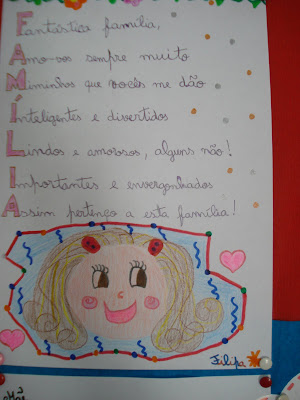 Fantástica família,
Amo-vos sempre muito
Miminhos que vocês me dão
Inteligentes e divertidos
Lindos e amorosos, alguns não!
Importantes e envergonhados
Assim pertenço a esta família!
Filipa